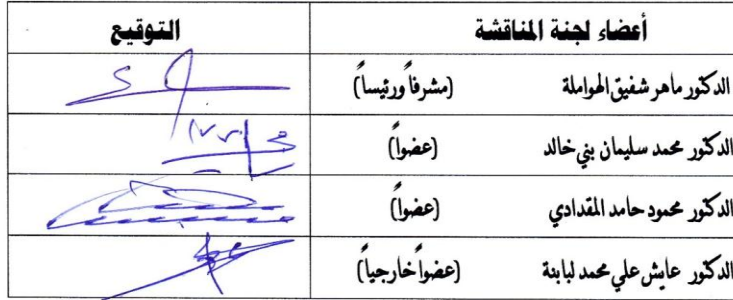 أعضاء لجنة المناقشة التوقيع
الدكتور ماهر شفيق الهواملة (مشرفاً ورئيساً)
الدكتور محمد سليمان بني خالد (عضواً)
الدكتور محمود حامد المقدادي (عضواً)
الدكتور عايش علي محمد لبابنة (عضواً خارجياً)